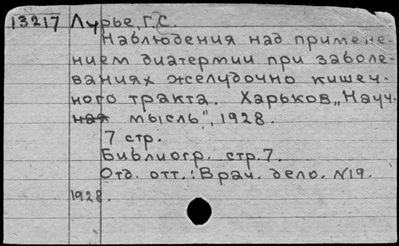 13217 Лурье, Г.С.
Наблюдения над примене-
нием диатермии при заболе-
ваниях желудочно кишеч-
ного тракта. Харьков, „Науч-
ная мысль", 1928.
7 стр.
Библиогр. стр. 7.
Отд. отт.: Врач. дело. N19.
1928.